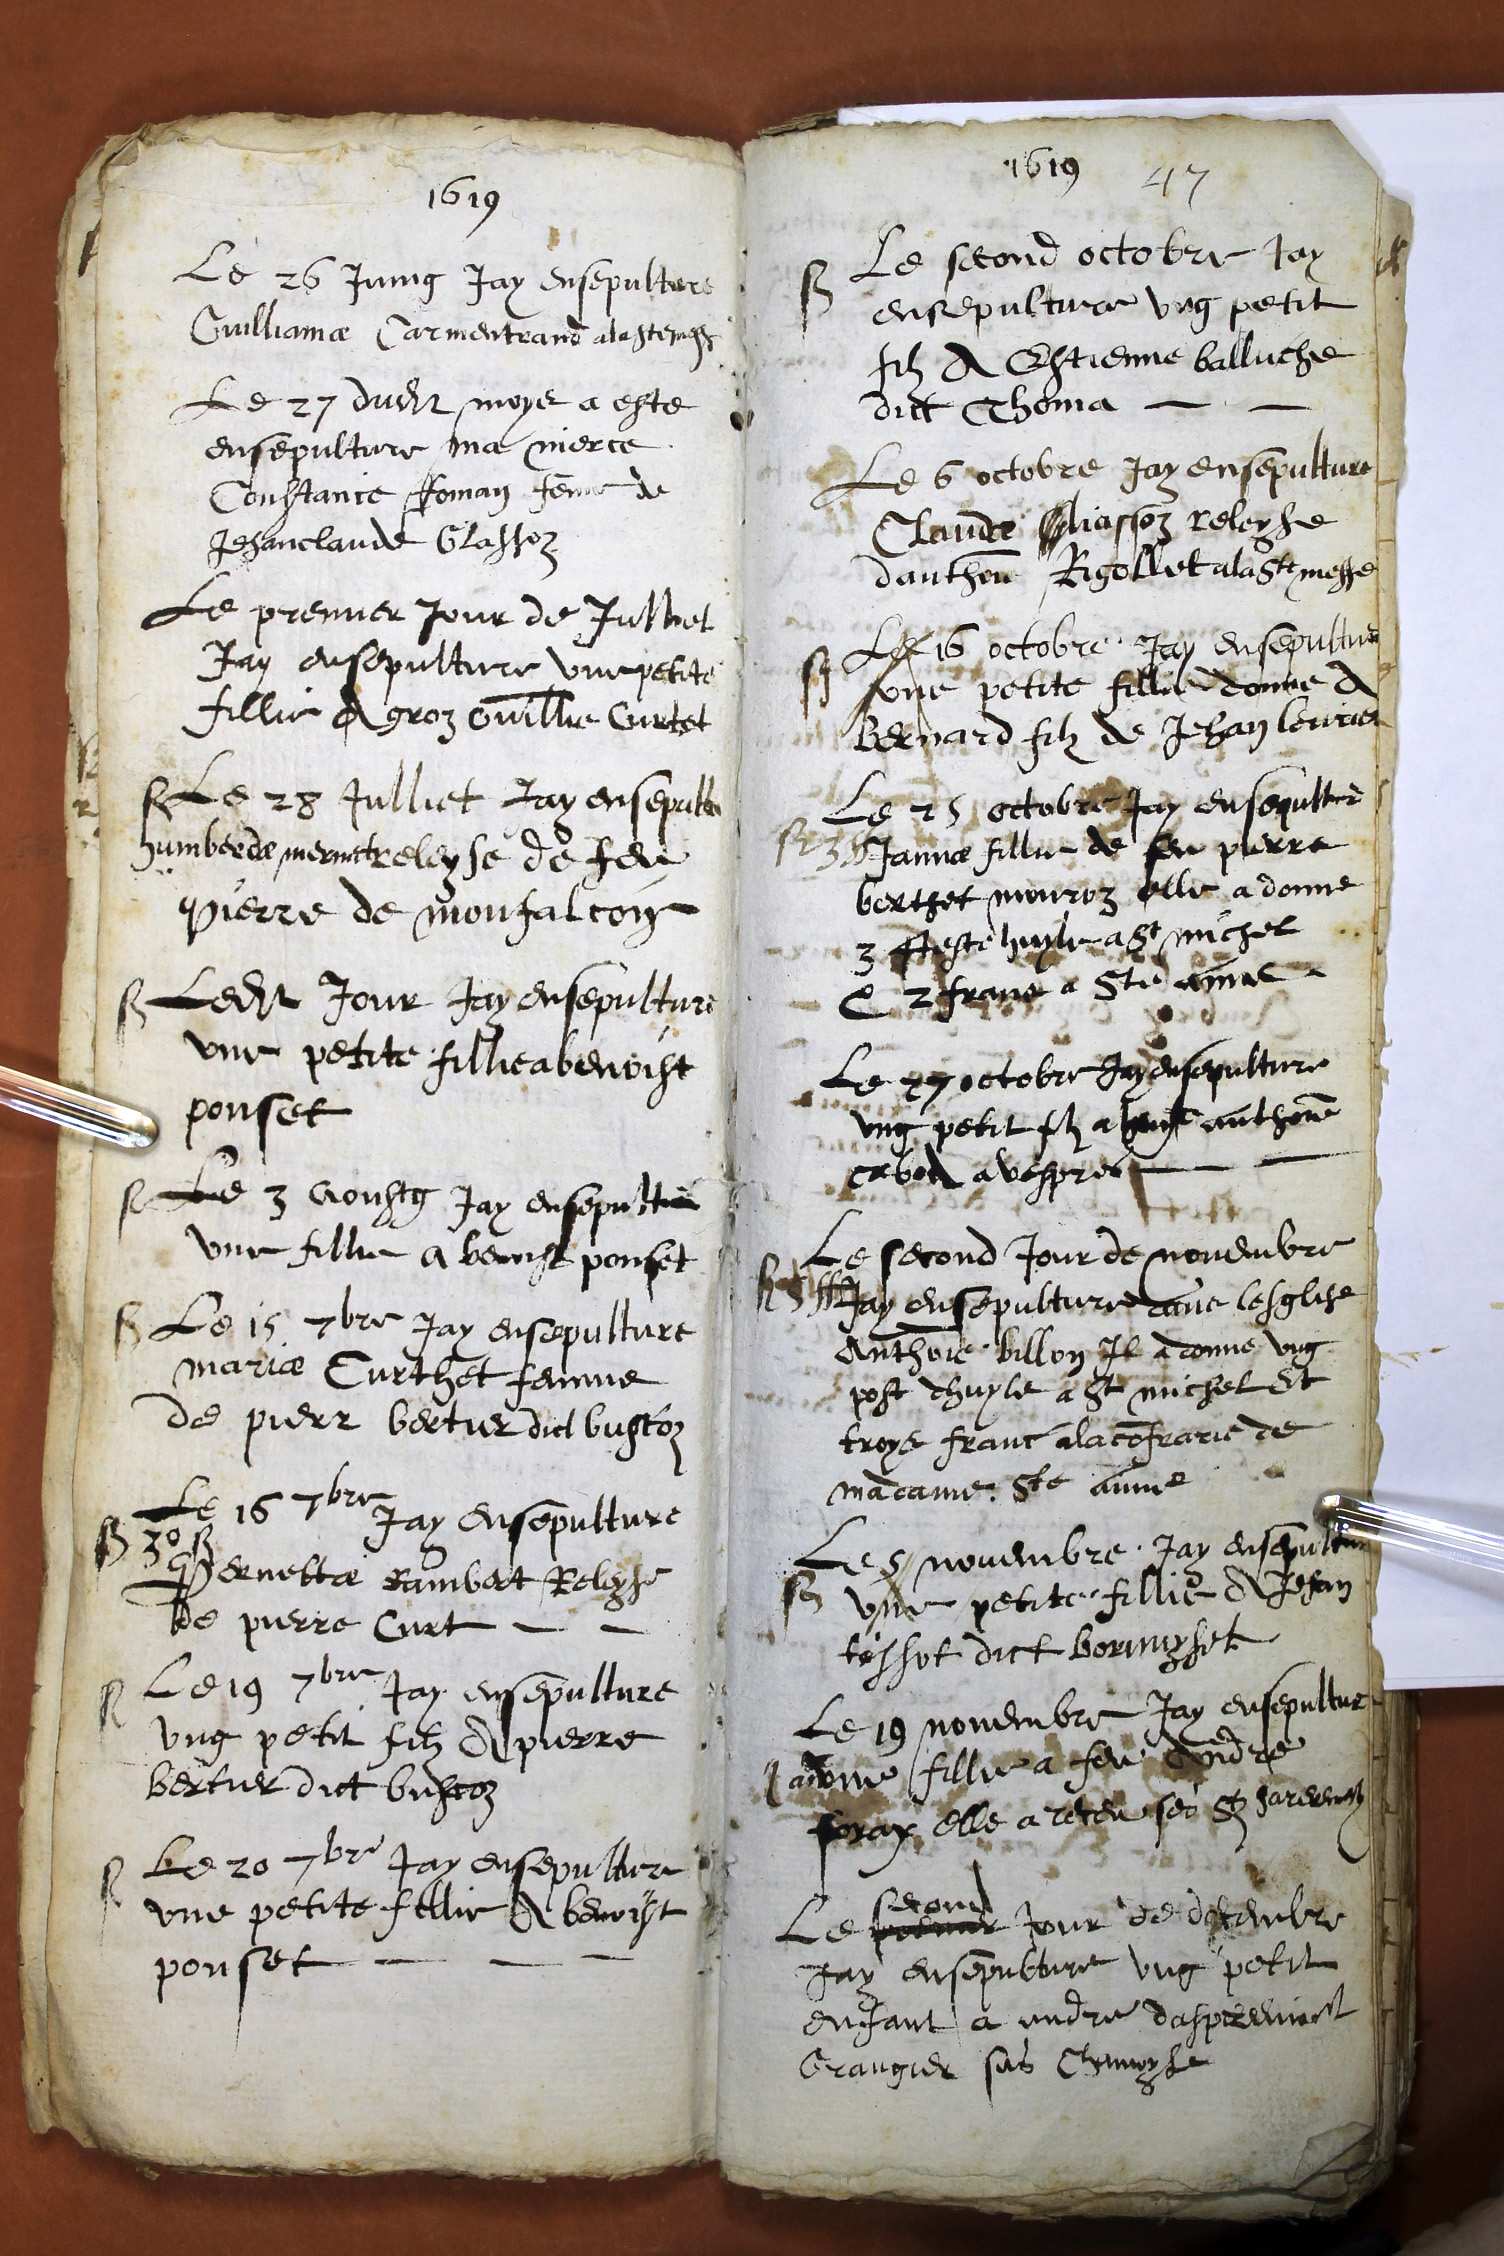 1619
Le 26 Juing Jay ensepulture
Guilliamæ Carmentrand a la Ste mess
Le 27 dudit moys a este
ensepulture ma nierce
Constance Roman feme de
Jehanclaude Glassoz
Le premier Jour de Julliet
Jay ensepulture une petite
fillie A groz Guillie Curtet
Le 28 Julliet Jay ensepultu
humberdæ mermet releyse de feu
pierre de monfalcon
Ledit Jour Jay ensepulture
une petite fillie a benoist
ponset
Le 3 Aoustg Jay ensepultu
une fillie a benoist ponset
Le 15 7bre Jay ensepulture
mariæ Curthet femme
de pierr bertier dict bustoz
Le 16 7bre Jay ensepulture
30
Pernettæ rambert Releyse
de pierre Curt
Le 19 7bre Jay ensepulture
ung petit filz A pierre
bertier dict bustoz
Le 20 7bre Jay ensepulture
une petite fillie A benoist
ponset
1619 47
Le second octobre Jay
ensepulture ung petit
filz A Estienne balluche
dict Thoma
Le 6 octobre Jay ensepulture
Claudæ releyse
danthen Rigollet a la Ste messe
Le 16 octobre Jay ensepulture
une petite fillie donne A
bernard filz de Jehan
Le 25 octobre Jay ensepultur
Janna fillie de feu pierre
berthet mouroz elle a donne
3 huyle a St michel
& 2 franc a Ste anne
Le 27 octobre Jay ensepulture
ung petit filz a anthoine
a vespres
Le second Jour de novembre
Jay ensepulture dans lesglise
Anthoine billon Il a donne ung
post dhuyle a St michel Et
troys franc a la cofrarie de
madame Ste anne
Le 5 novembre Jay ensepultur
une petite fillie A Jehan
tissot dict
Le 19 novembre Jay ensepultur
fillie a feu Andre
elle a receu ses St
second
Le Jour de decembre
Jay ensepulture ung petit
enfant a andre
Grangier